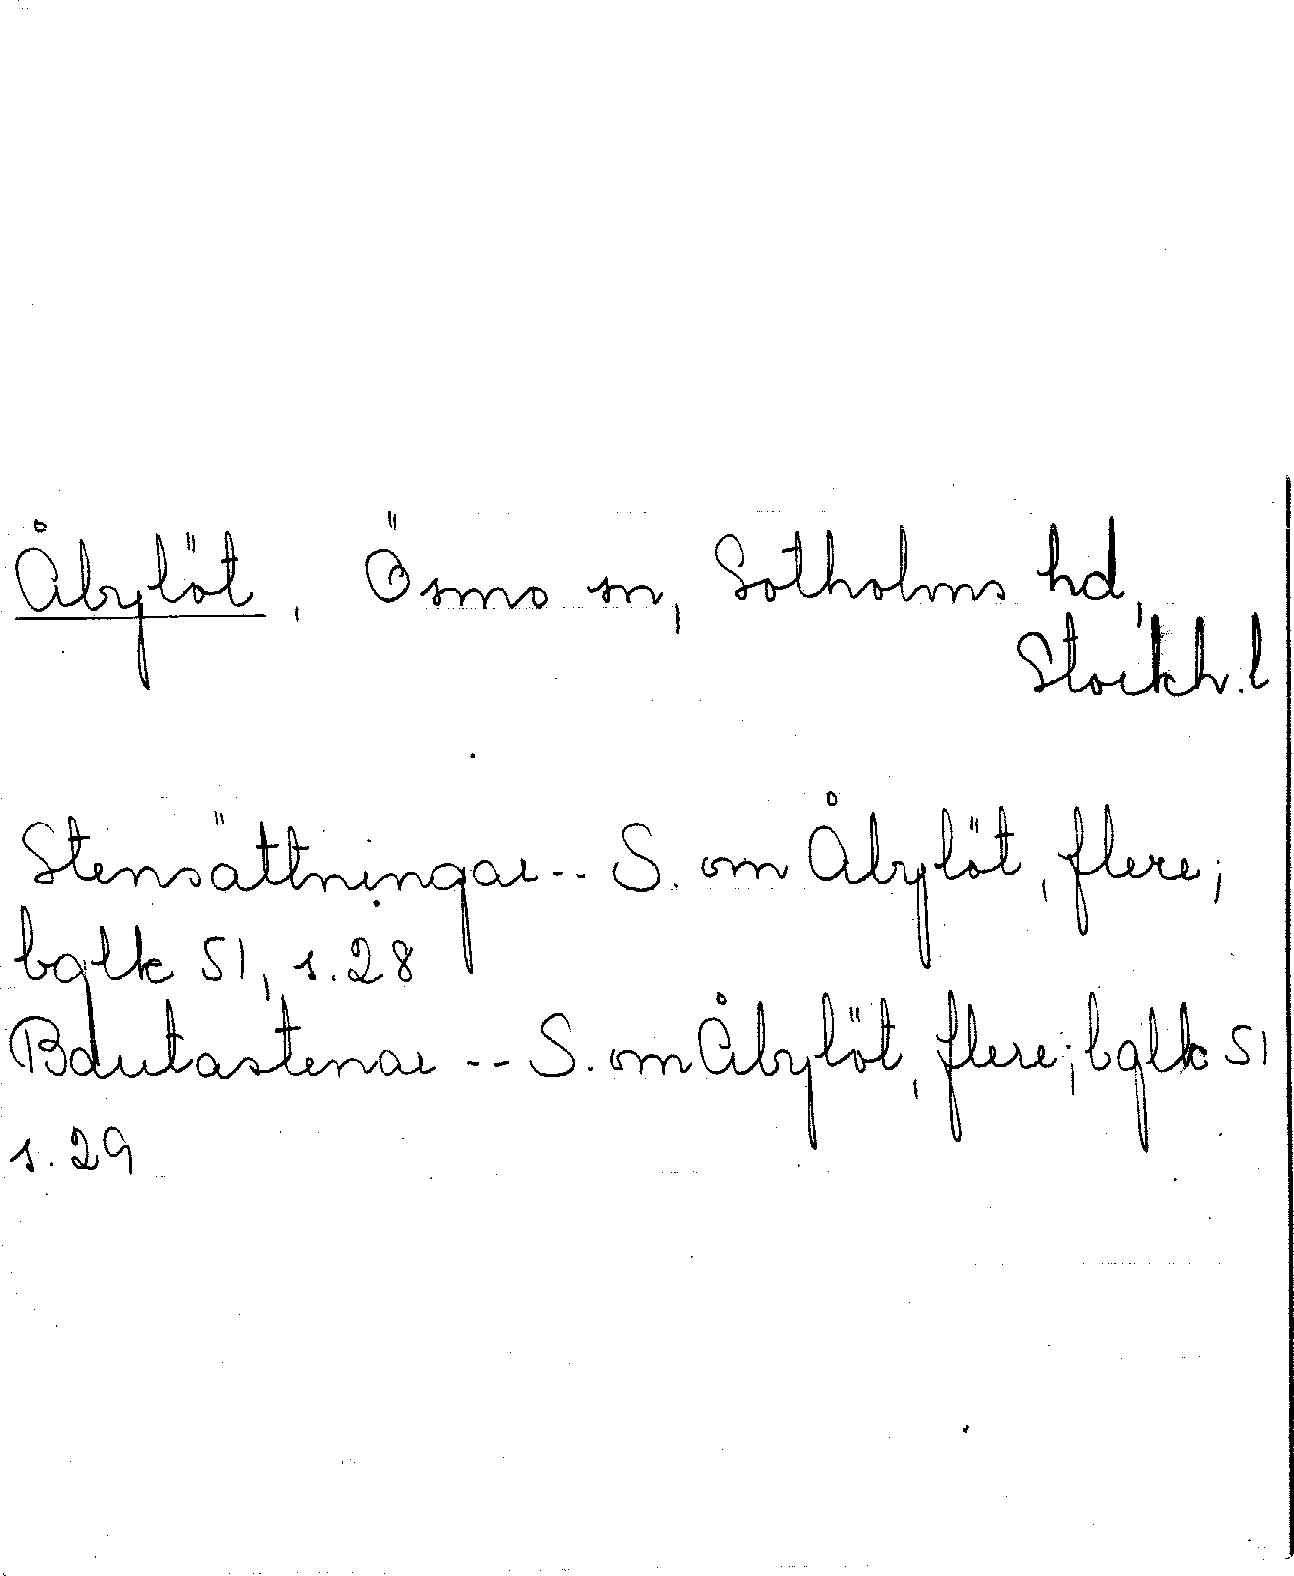 Åbylöt, Ösmo sn, Sotholms hd,
Stockh. l
Stensättningar -- S. om Åbylöt, flere;
bglk 51, s. 28
Bautastenar -- S. om Åbylöt, flere; bglk 51
s. 29